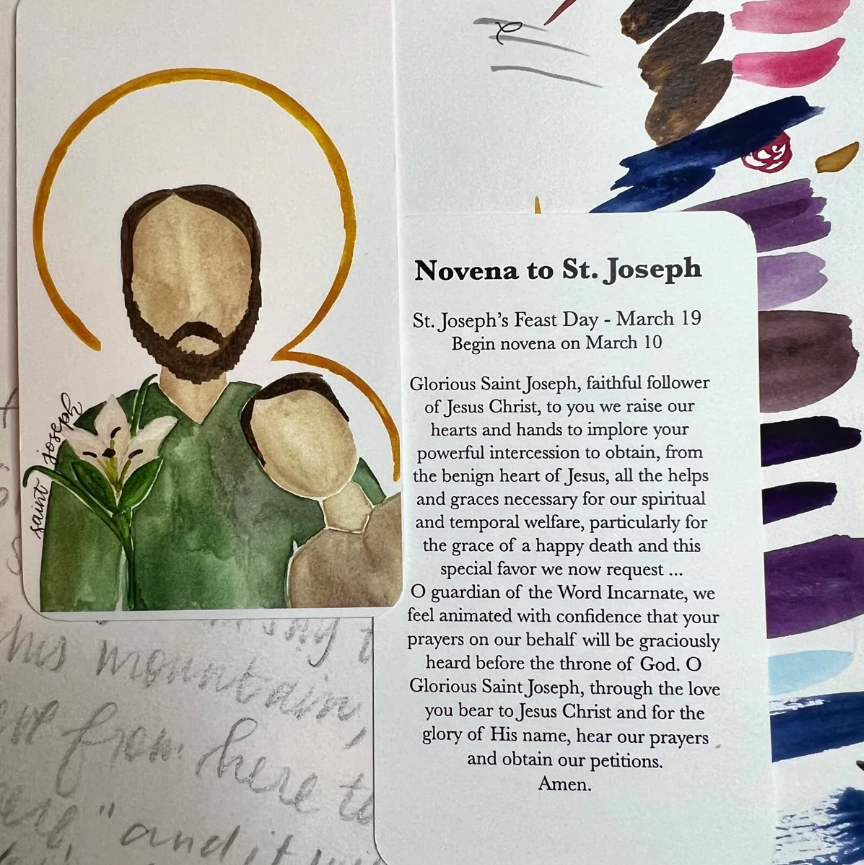 saint joseph
Novena to St. Joseph
St. Joseph's Feast Day - March 19
Begin novena on March 10
Glorious Saint Joseph, faithful follower
of Jesus Christ, to you we raise our
hearts and hands to implore your
powerful intercession to obtain, from
the benign heart of Jesus, all the helps
and graces necessary for our spiritual
and temporal welfare, particularly for
the grace of a happy death and this
special favor we now request ...
O guardian of the Word Incarnate, we
feel animated with confidence that your
prayers on our behalf will be graciously
heard before the throne of God. O
Glorious Saint Joseph, through the love
you bear to Jesus Christ and for the
glory of His name, hear our prayers
and obtain our petitions.
Amen.
this mountain,
from here to
" and it